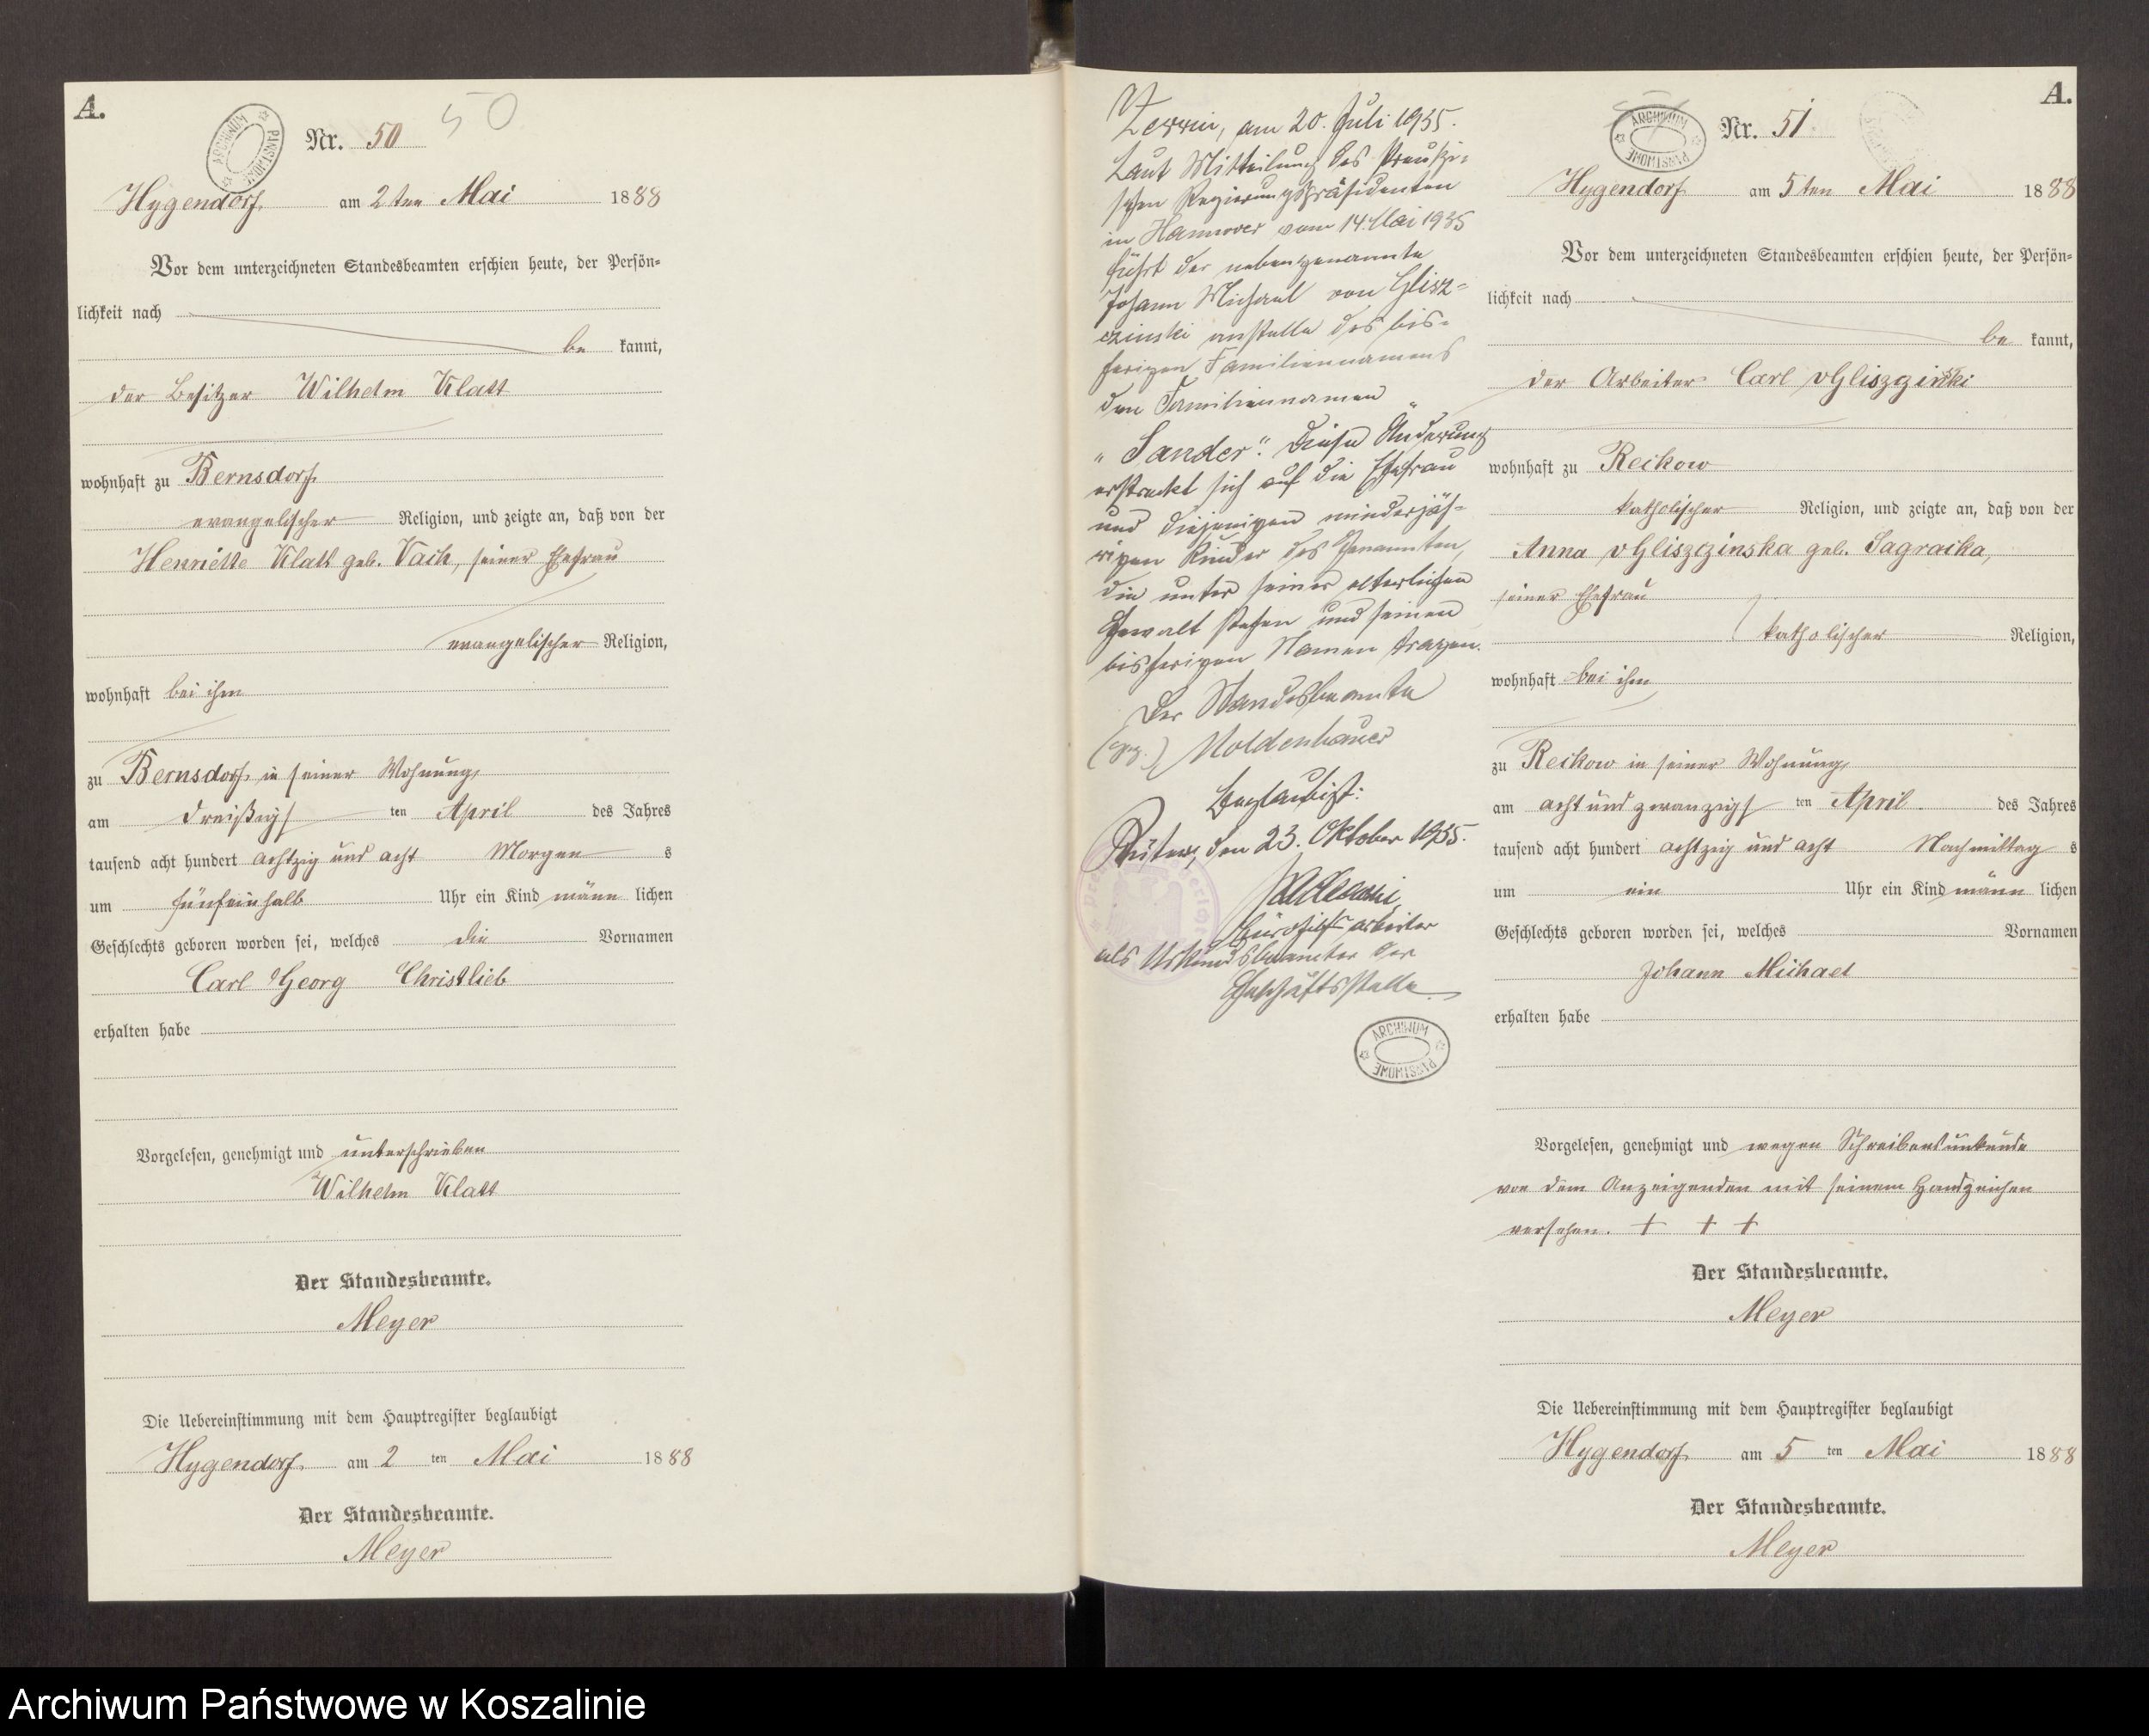 A.
50
ARCHIWUM PAŃSTWOWE
Nr. 50
Hygendorf am 2ten Mai 1888
Vor dem unterzeichneten Standesbeamten erschien heute, der Persön=
lichkeit nach
be kannt,
der Besitzer Wilhelm Klatt
wohnhaft zu Bernsdorf
evangelischer Religion, und zeigte an, daß von der
Henriette Klatt geb. Vach, seiner Ehefrau
evangelischer Religion,
wohnhaft bei ihm
zu Bernsdorf in seiner Wohnung
am dreißigs ten April des Jahres
tausend acht hundert achtzig und acht Morgen s
um fünfeinhalb Uhr ein Kind männ lichen
Geschlechts geboren worden sei, welches die Vornamen
Carl Georg Christlieb
erhalten habe
Vorgelesen, genehmigt und unterschrieben
Wilhelm Klatt
Der Standesbeamte.
Meyer
Die Uebereinstimmung mit dem Hauptregister beglaubigt
Hygendorf am 2 ten Mai 1888
Der Standesbeamte.
Meyer
Zerrin, am 20. Juli 1935.
Laut Mitteilung des Preußi=
schen Regierungspräsidenten
in Hannover vom 14. Mai 1935
führt der nebengenannte
Johann Michael von Glisz=
czinski anstelle des bis=
herigen Familiennamens
den Familiennamen
"Sander". Diese Änderung
erstreckt sich auf die Ehefrau
und diejenigen minderjäh=
rigen Kinder des Genannten,
die unter seiner elterlichen
Gewalt stehen und seinen
bisherigen Namen tragen.
Der Standesbeamte
(gez.) Moldenhauer
Beglaubigt:
Bütow, den 23. Oktober 1935.
Bürohilfsarbeiter
als Urkundsbeamter der
Geschäftsstelle
ARCHIWUM PAŃSTWOWE
A.
51
ARCHIWUM PAŃSTWOWE
Nr. 51
Hygendorf am 5ten Mai 1888
Vor dem unterzeichneten Standesbeamten erschien heute, der Persön=
lichkeit nach
be kannt,
der Arbeiter Carl vGliszczinski
wohnhaft zu Reckow
katholischer Religion, und zeigte an, daß von der
Anna vGliszczinska geb. Sagracka,
seiner Ehefrau
katholischer Religion,
wohnhaft bei ihm
zu Reckow in seiner Wohnung
am acht und zwanzigs ten April des Jahres
tausend acht hundert achtzig und acht Nachmittag s
um ein Uhr ein Kind männ lichen
Geschlechts geboren worden sei, welches Vornamen
Johann Michael
erhalten habe
Vorgelesen, genehmigt und wegen Schreibensunkunde
von dem Anzeigenden mit seinem Handzeichen
versehen. + + +
Der Standesbeamte.
Meyer
Die Uebereinstimmung mit dem Hauptregister beglaubigt
Hygendorf am 5 ten Mai 1888
Der Standesbeamte.
Meyer
Archiwum Państwowe w Koszalinie